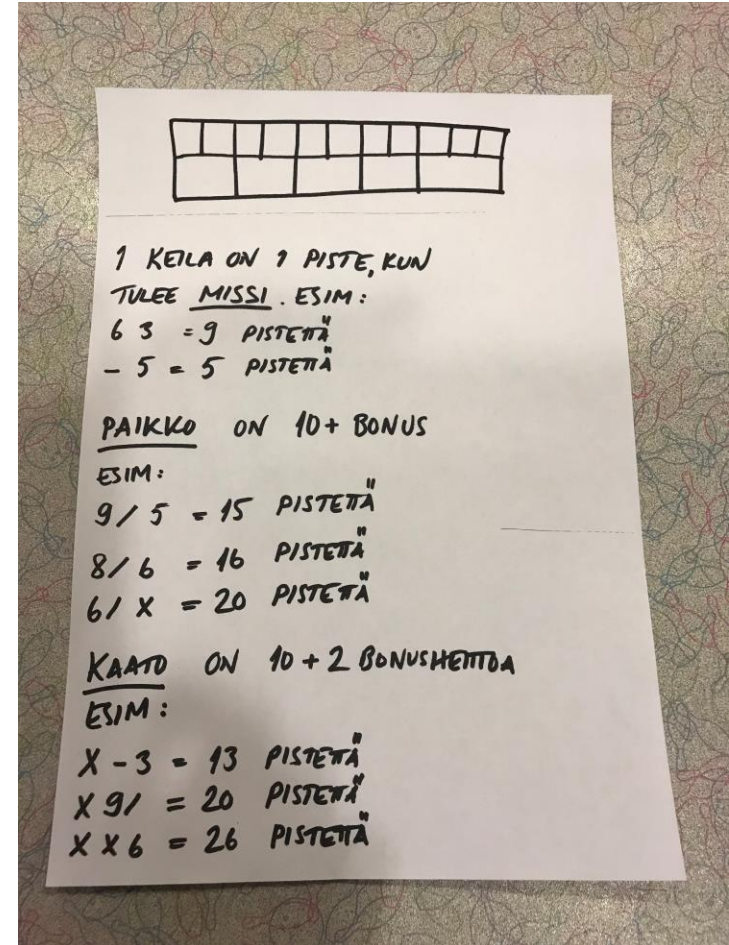 1 KEILA ON 1 PISTE, KUN
TULEE MISSI. ESIM:
6 3 = 9 PISTETTÄ
- 5 = 5 PISTETTÄ
PAIKKO ON 10 + BONUS
ESIM:
9 / 5 = 15 PISTETTÄ
8 / 6 = 16 PISTETTÄ
6 / X = 20 PISTETTÄ
KAATO ON 10 + 2 BONUSHEITTOA
ESIM:
X - 3 = 13 PISTETTÄ
X 9 / = 20 PISTETTÄ
X X 6 = 26 PISTETTÄ